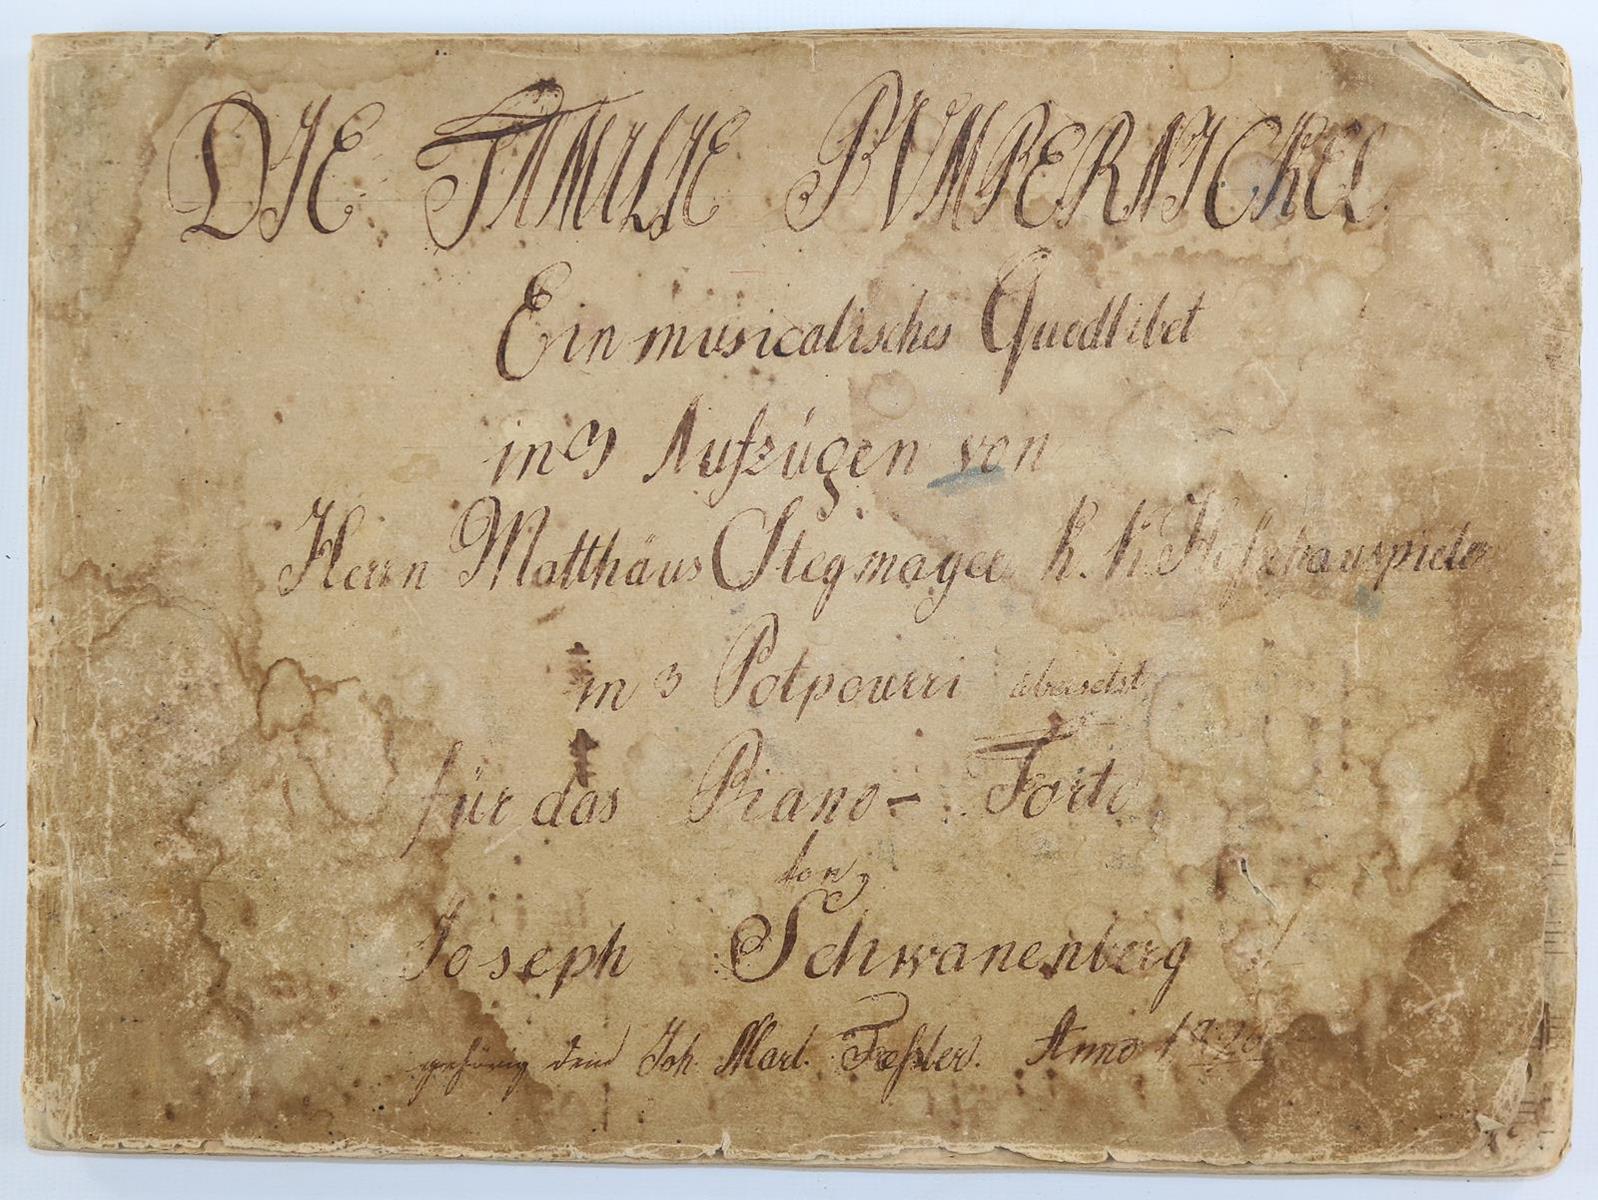 DIE FAMILIE PUMPERNICKEL
Ein musicalisches Quodlibet
in 3 Aufzügen von
Herrn Matthäus Stegmayer k. k. Hofschauspieler
in 3 Potpourri übersetzt
für das Piano- Forte
von
Joseph Schwanenberg
gehörig dem Joh. Mart. Anno